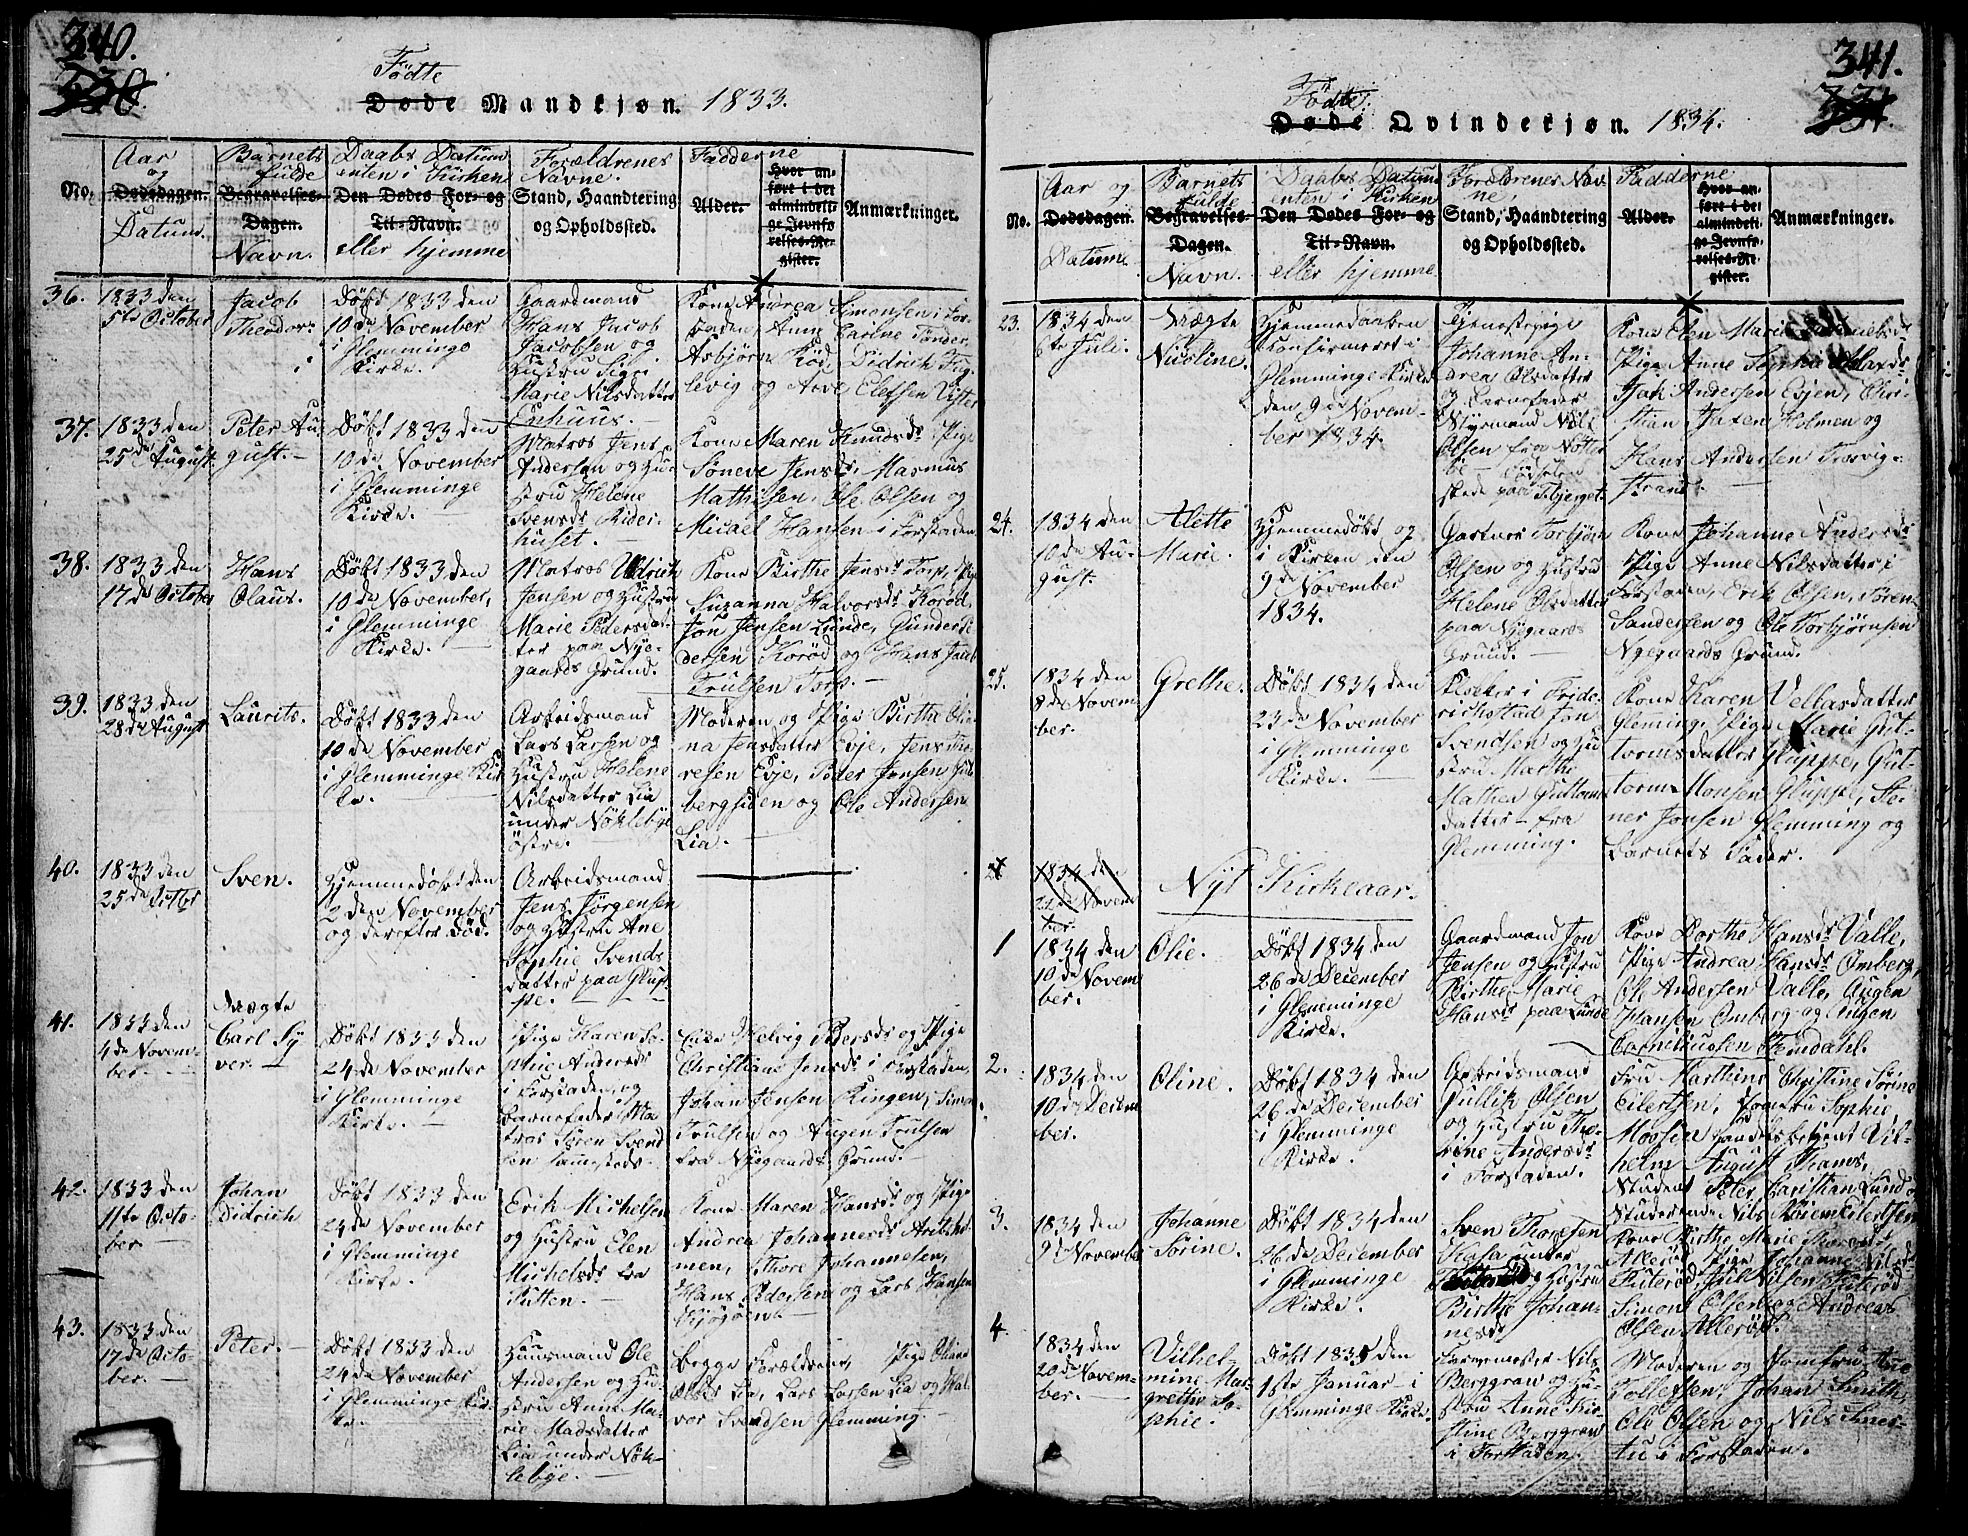 340.
330.
Födte
Døde Mandkjøn. 1833.
No.
Aar
og
Dødsdagen.
Datum.
Barnets
fulde
Begravelses-
Dagen.
Navn.
Daabs Datum
enten i Kirken
Den Dødes For- og
Til-Navn.
eller hjemme
Forældrenes
Navne.
Stand, Haandtering
og Opholdssted.
Fadderne
Alder.
Hvor an-
ført i det
almindeli-
ge Jevnfø-
relses-Re-
gister.
Anmærkninger.
36.
1833 den
5te October
Jacob
Theodor.
Døbt 1833 den
10de November
i Glemminge
Kirke.
Gaardmand
Hans Jacob
Jacobsen og
Hustru Siri
Marie Nilsdatter
Enhuus.
Kone Andrea Simonsen i For-
staden, Anne Cathrine Tonder,
Asbjørn Röd, Didrich Fug-
levig og Arve Elefsen Vister
37.
1833 den
25de August
Peter Au-
gust.
Døbt 1833 den
10de November
i Glemminge
Kirke.
Matros Jens
Andersen og Hu-
stru Helene
Svensdr Rider-
huset.
Kone Maren Knudsdr, Pige
Söneve Jensdr, Rasmus
Mathisen, Ole Olsen og
Micael Hansen i Forstaden
38.
1833 den
17de October
Hans
Olaus.
Døbt 1833 den
10de November,
i Glemminge
Kirke.
Matros Uldrich
Jensen og Hustru
Marie Pedersdat-
ter paa Nye-
gaards Grund.
Kone Birthe Jensdr Torp, Pige
Suzanna Halvorsdr Korød,
Jon Jensen Lunde, Gunder Pe-
dersen Korød og Hans Jacob
Trulsen Torp.
39.
1833 den
28de August
Laurits.
Døbt 1833 den
10de November
i Glemminge Kir-
ke.
Arbeidsmand
Lars Larsen og
Hustru Helene
Nilsdatter Lia
under Nöklebye
östre.
Moderen og Pige Birthe Oli-
na Jensdatter Evje, Jens Tho-
resen Evje, Peder Jensen
bergsiden og Ole Andersen
Lia.
40.
1833 den
25de Octbr
Sven.
Hjemmedøbt den
2den November
og derefter død.
Arbeidsmand
Jens Jörgensen
og Hustru Ane
Sophie Svends-
datter paa Glup-
pe.
41.
1833 den
4de Novem-
ber.
Uægte
Carl Sy-
ver.
Døbt 1833 den
24de November
i Glemminge
Kirke.
Pige Karen So-
phie Andersdr
i Forstaden, og
Barnefader Ma-
tros Sören Svend-
sen sammesteds.
Enke Helvig Pedersdr og Pige
Christiane Jensdr i Forstaden,
Johan Jensen Ringen, Simon
Trulsen og Augen Trulsen
fra Nyegaards Grund.
42.
1833 den
11te Octo-
ber.
Johan
Didrich
Døbt 1833 den
24de November
i Glemminge
Kirke.
Erik Michelsen
og Hustru Elen
Michelsdr fra
Putten.
Kone Maren Hansdr og Pige
Andrea Johannesdr
men, Thore Johannesen,
Hans Pedersen og Lars Hansen
Kjøgøen.
43.
1833 den
17de Octo-
ber.
Peter.
Døbt 1833 den
24de November
i Glemminge Kir-
ke.
Huusmand Ole
Andersen og Hu-
stru Anne Ma-
rie Madsdatter
Lia under Nök-
lebye.
Begge Forældrene, Pige Oliana
Olsdr Lia, Lars Larsen Lia og Hal-
vor Svendsen Glemming.
341.
331.
Födte
Døde Qvindekjøn. 1834.
No.
Aar og
Dødsdagen.
Datum
Barnets
fulde
Begravelses-
Dagen.
Navn.
Daabs Datum
enten i Kirken
Den Dødes For- og
Til-Navn.
eller hjemme
Forældrenes Nav-
ne,
Stand, Haandtering
og Opholdssted.
Fadderne
Alder.
Hvor an-
ført i det
almindeli-
ge Jevnfø-
relses-Re-
gister.
Anmærkninger.
23.
1834 den
6te Juli.
Uægte
Nicoline.
Hjemmedaaben
confirmeret i
Glemminge Kirke
den 9de Novem-
ber 1834.
Tjenestepige
Johanne An-
drea Olsdatter
og Barnefader
Styrmand Nils
Olsen fra Nötter-
öe
paa Bjerget.
Kone Elen Marie
Pige Anne Sophie
Isak Andersen Evjen, Chri-
stian Holmen og
Hans Andersen Trosvig-
strand.
24.
1834 den
10de Au-
gust.
Alette
Marie.
Hjemmedøbt og
i Kirken den
9de November
1834.
Gartner Torbjörn
Olsen og Hustru
Helene Olsdatter
paa Nyegaards
Grund.
Kone Johanne Andersdr
Pige Anne Nilsdatter i
Forstaden, Erik Olsen, Sören
Sandersen og Ole Torbjørnsen
Nyegaards Grund.
25.
1834 den
8de Novem-
ber.
Grethe.
Døbt 1834 den
23de November
i Glemminge
Kirke.
Klokker i Fride-
richstad Jon
Svendsen og Hu-
stru Marthe
Mathea Guttorms-
datter fra
Glemming.
Kone Karen Vellasdatter
Gleming, Pige Marie Gut-
tormsdatter Gluppe, Gut-
torm Monsen Gluppe, Ste-
ner Jonsen Glemming og
Barnets Fader.
1834 den
22de Novem-
ber.
Nyt Kirkeaar.
1
1834 den
10de Novem-
ber.
Olie.
Døbt 1834 den
26de December
i Glemminge
Kirke.
Gaardmand Jon
Jensen og Hustru
Birthe Marie
Hansdr paa Lunde
Kone Dorthe Hansdr Valle,
Pige Andrea Hansdr Omberg,
Ole Andersen Valle, Augen
Hansen Omberg og Augen
Corneliussen Tomdahl.
2.
1834 den
10de Decem-
ber.
Oline.
Døbt 1834 den
26de December
i Glemminge
Kirke.
Arbeidsmand
Pullik Olsen
og Hustru Tho-
rine Andersdr
i Forstaden.
Fru Marthine Christine Sörine
Eilertsen, Jomfru Sophie
Moosin, Handelsbetjent Vil-
helm August Thams,
Student Peter Christian Lund og
Studerende Nils Riem Eilertsen
3.
1834 den
9de November
Johanne
Sörine.
Døbt 1834 den
26de December
i Glemminge
Kirke.
Sven Thoresen
Kasa under
og Hustru
Birthe Johan-
nesdr
Kone Birthe Marie
Alleröd, Pige Johanne Nilsdr
Puteröd, Juul Nilsen Puteröd
Simon Olsen og Andreas
Olsen Alleröd.
4.
1834 den
20de Novem-
ber.
Vilhel-
mine Mar-
grethe So-
phie.
Døbt 1835 den
1ste Januar i
Glemminge Kirke.
Farvemester Nils
Berggran og Hu-
stru Anne Kir-
stine Berggran
i Forstaden.
Moderen og Jomfru Ane
Tollefsen, Johan Smith,
Ole Olsen og Nils
i Forstaden.